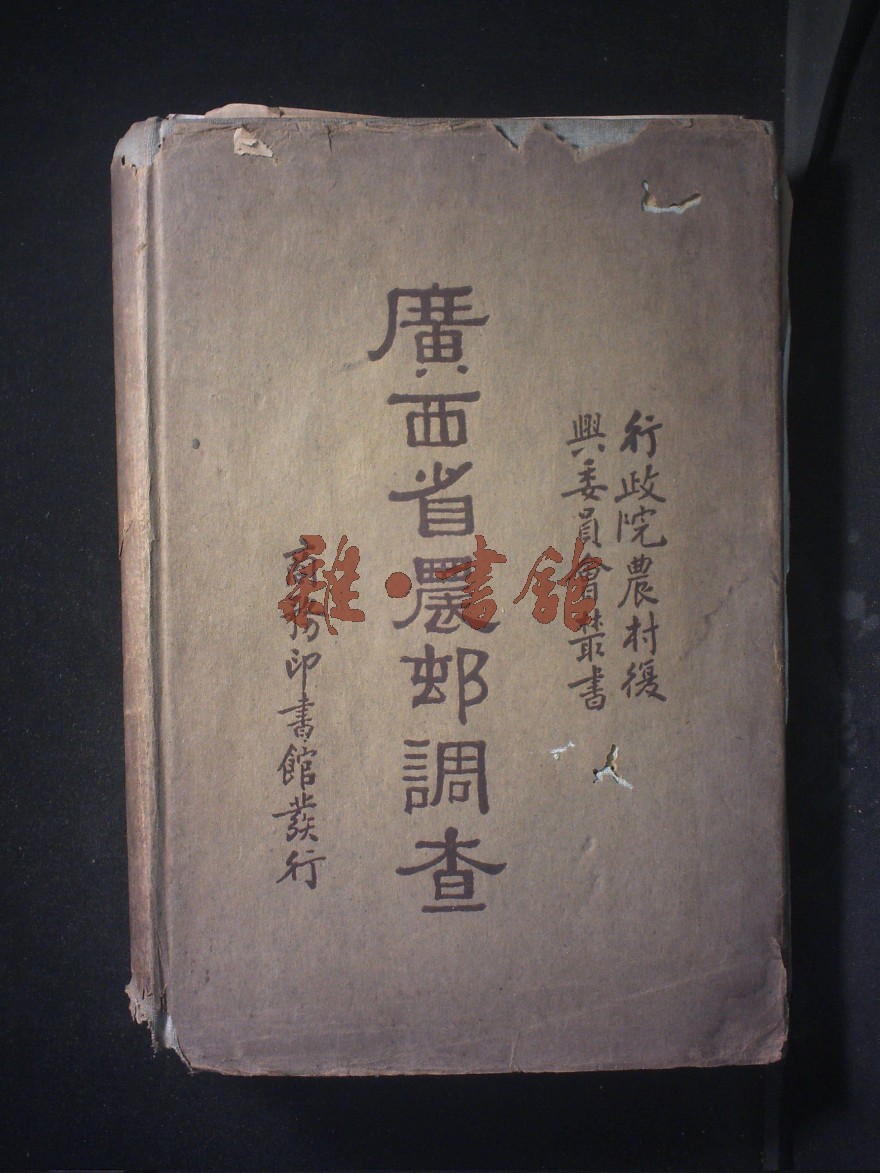 行政院農村復
興委員會叢書
廣西省農邨調查
商務印書館發行
雜·書館